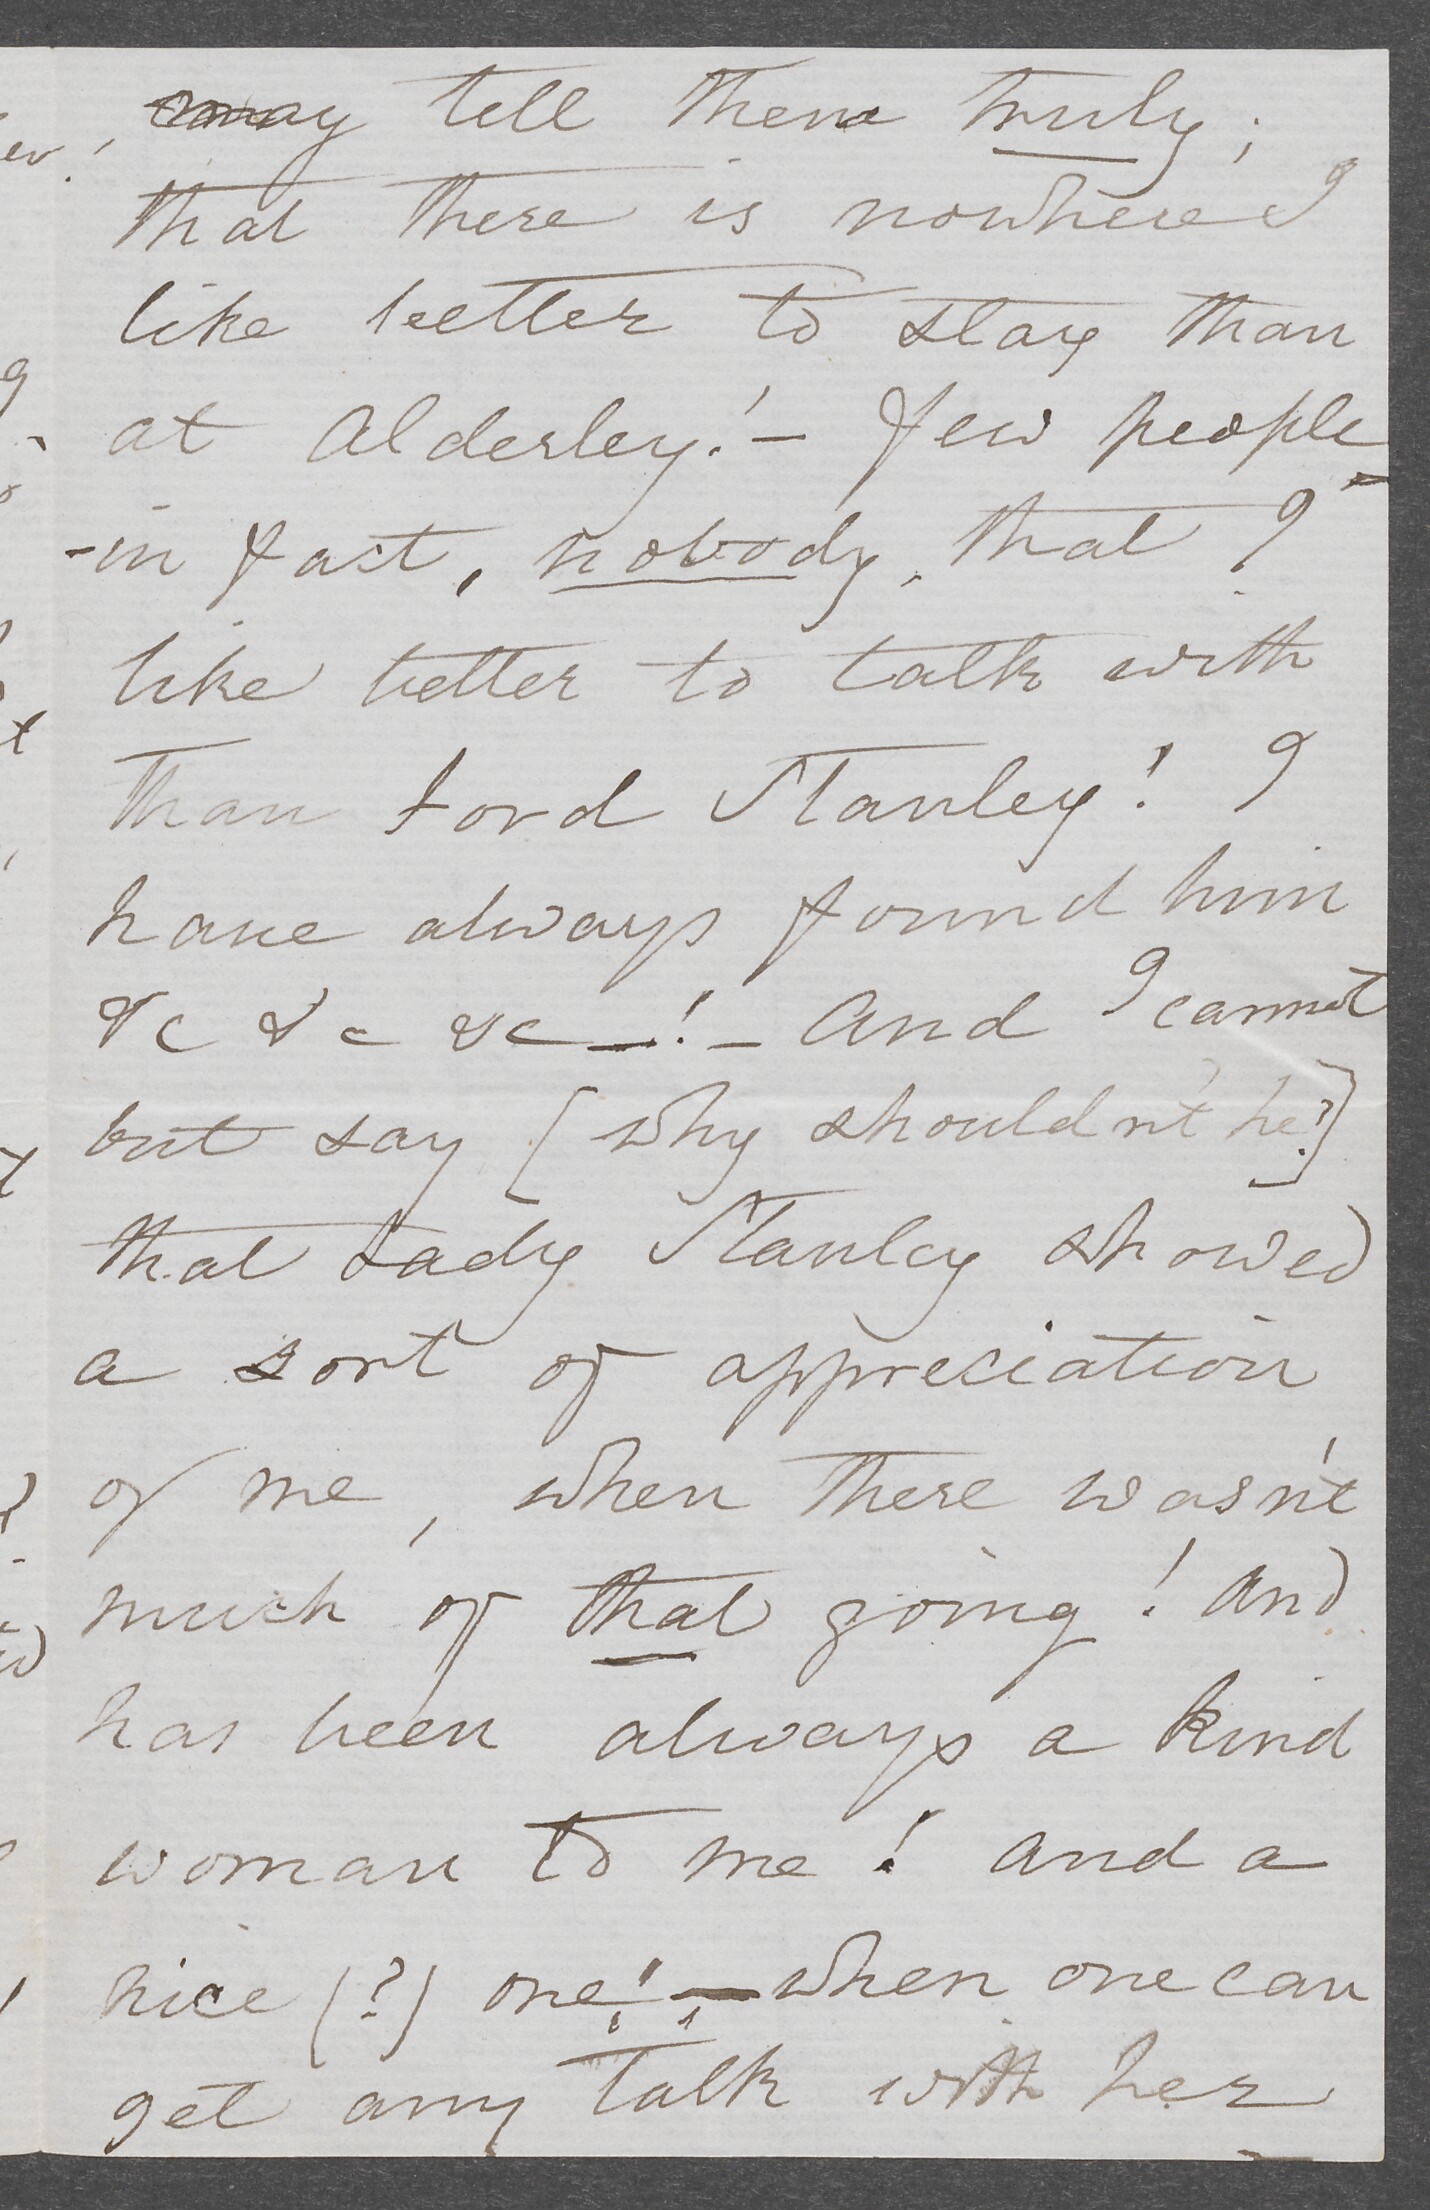 may tell them truly;
that there is nowhere I
like better to stay than
at Alderley! – few people
– in fact, nobody, that I
like better to talk with
than Lord Stanley! I
have always found him
&c &c &c – ! – And I cannot
but say [why should n't he?]
that Lady Stanley showed
a sort of appreciation
of me, when there was n't
much of that going! And
has been always a kind
woman to me! and a
nice (?) one! – when one can
get any talk with her